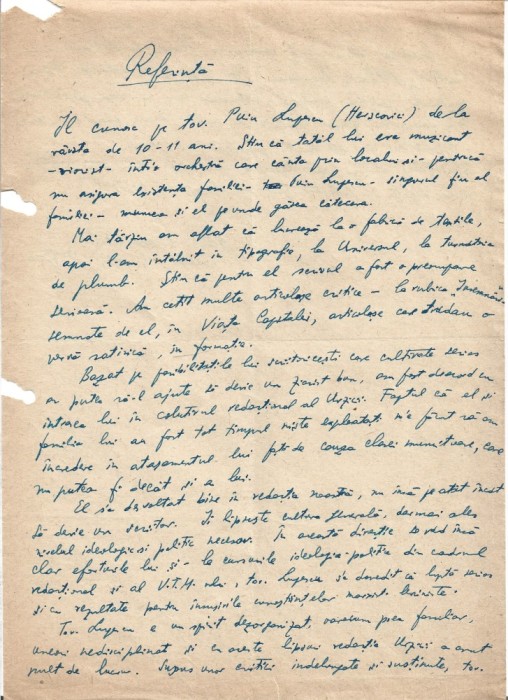 Referință
Il cunosc pe tov. Puiu Lugescu (Herscovici) de la
vârsta de 10-11 ani. Știu că tatăl lui era muzicant
- violonist - într-o orchestră care cânta prin localuri și - fiindcă
nu asigura existența familiei - Puiu Lugescu - singurul fiu al
familiei - muncea și el pe unde găsea câteceva.
Mai târziu am aflat că lucrează la o fabrică de textile,
apoi l-am întâlnit în tipografie, la Universul, la turnătoria
de plumb. Știu că pentru el scrisul a fost o preocupare
serioasă. Am cetit multe articolașe critice - la rubrica "Însemnări"
semnate de el, în Viața Capitalei, articolașe care trădau o
vervă satirică, în formație.
Bazat pe posibilitățile lui scriitoricești care cultivate serios
ar putea să-l ajute să devie un ziarist bun, am fost deacord cu
intrarea lui în colectivul redacțional al Urzicii. Faptul că el și
familia lui au fost tot timpul niște exploatați m'a făcut să am
încredere în atașamentul lui față de cauza clasei muncitoare, care
nu putea fi decât și a lui.
El s'a dezvoltat bine în redacția noastră, nu însă pe atât încât
să devie un scriitor. Ii lipsește cultura generală, dar mai ales
nivelul ideologic și politic necesar. În această direcție se văd însă
clar eforturile lui și - la cursurile ideologic-politice din cadrul
redacțional și al U.T.M.-ului, tov. Lugescu a dovedit că luptă serios
și cu rezultate pentru însușirea cunoștințelor marxist-leniniste.
Tov. Lugescu e un spirit dezorganizat, oarecum prea familiar,
uneori nedisciplinat și cu aceste lipsuri redacția Urzicii a avut
mult de lucru. Supus unor critici îndelungate și susținute, tov.